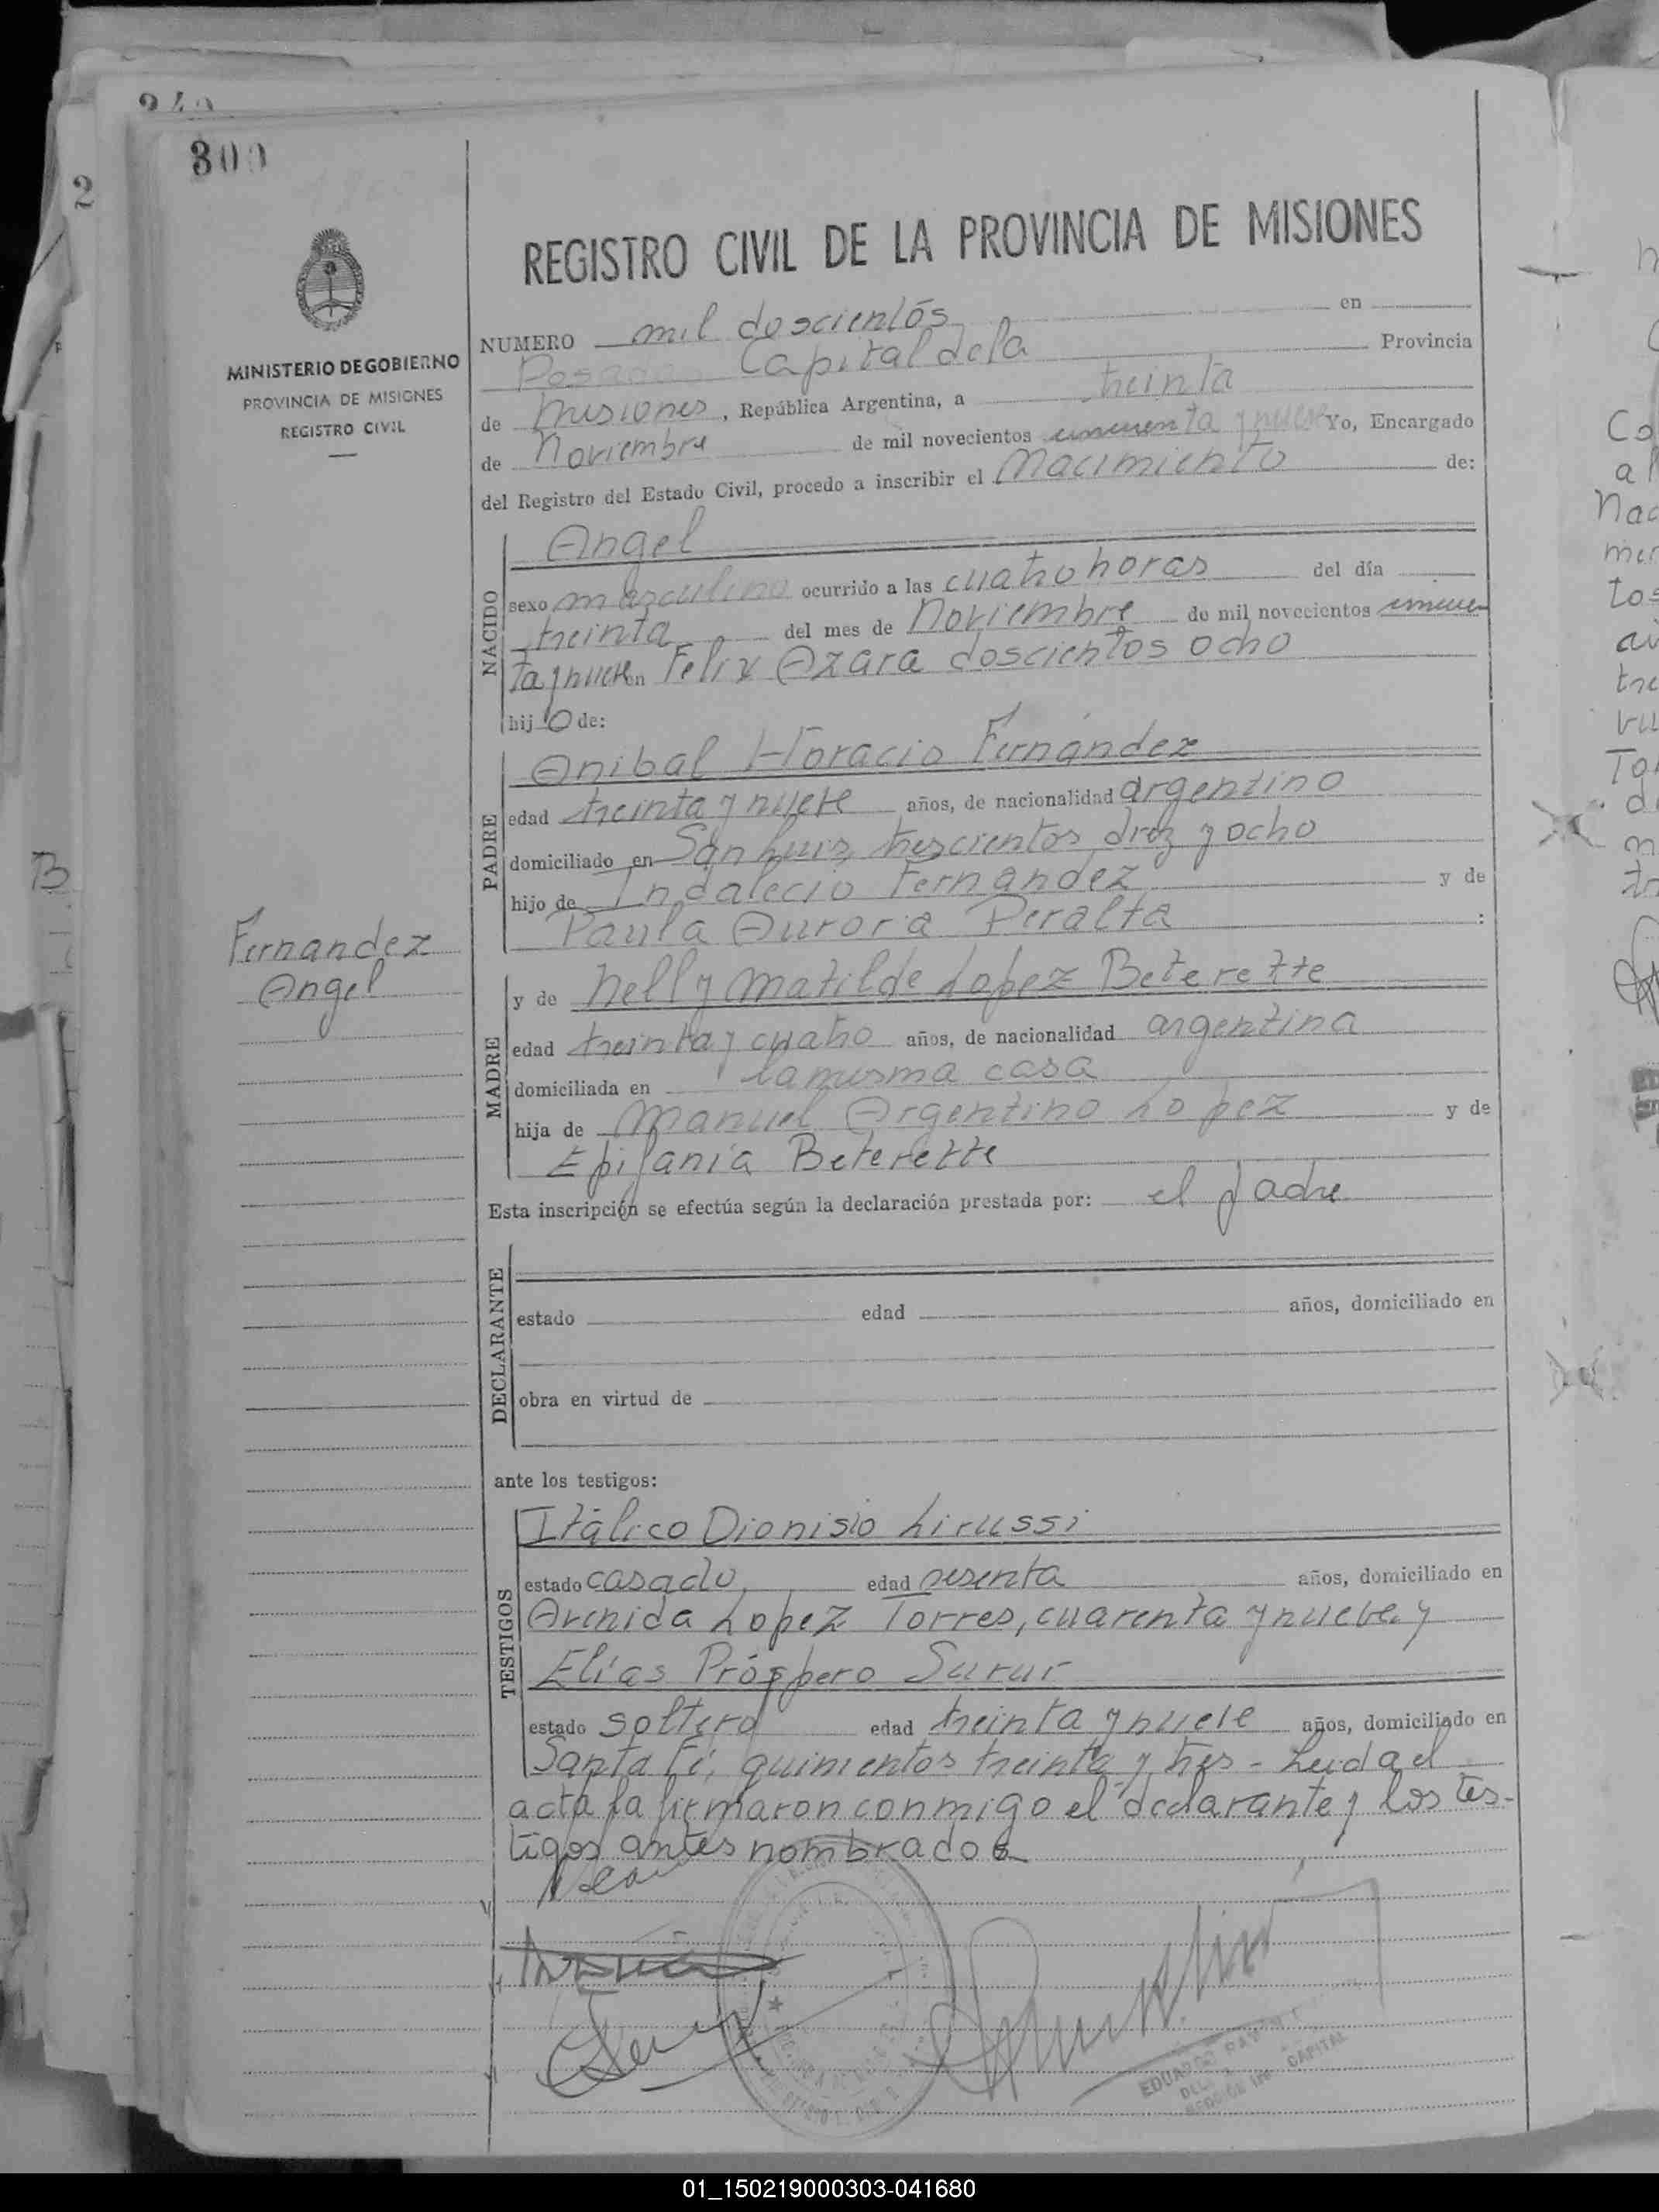 300
2
MINISTERIO DE GOBIERNO
PROVINCIA DE MISIONES
REGISTRO CIVIL
Fernandez
Angel
REGISTRO CIVIL DE LA PROVINCIA DE MISIONES
NUMERO mil doscientos en
Posadas Capital de la Provincia
de Misiones, República Argentina, a treinta
de Noviembre de mil novecientos cincuenta y nueve Yo, Encargado
del Registro del Estado Civil, procedo a inscribir el Nacimiento de:
NACIDO
Angel
sexo masculino ocurrido a las cuatro horas del día
treinta del mes de Noviembre de mil novecientos cincuen
ta y nueve en Felix Azara doscientos ocho
hijo de:
PADRE
Anibal Horacio Fernández
edad treinta y nueve años, de nacionalidad argentino
domiciliado en San Luis, trescientos diez y ocho
hijo de Indalecio Fernandez y de
Paula Aurora Peralta :
MADRE
y de Nelly Matilde Lopez Beterette
edad treinta y cuatro años, de nacionalidad argentina
domiciliada en la misma casa
hija de Manuel Argentino Lopez y de
Epifania Beterette
Esta inscripción se efectúa según la declaración prestada por: el padre
DECLARANTE
estado edad años, domiciliado en
obra en virtud de
ante los testigos:
TESTIGOS
Itálico Dionisio Lirussi
estado casado, edad sesenta años, domiciliado en
Avenida Lopez Torres, cuarenta y nueve y
Elías Próspero Surur
estado soltero edad treinta y nueve años, domiciliado en
Santa Fé, quinientos treinta y tres - Leida el
acta la firmaron conmigo el declarante y los tes-
tigos antes nombrados
EDUARDO
CAPITAL
01_150219000303-041680